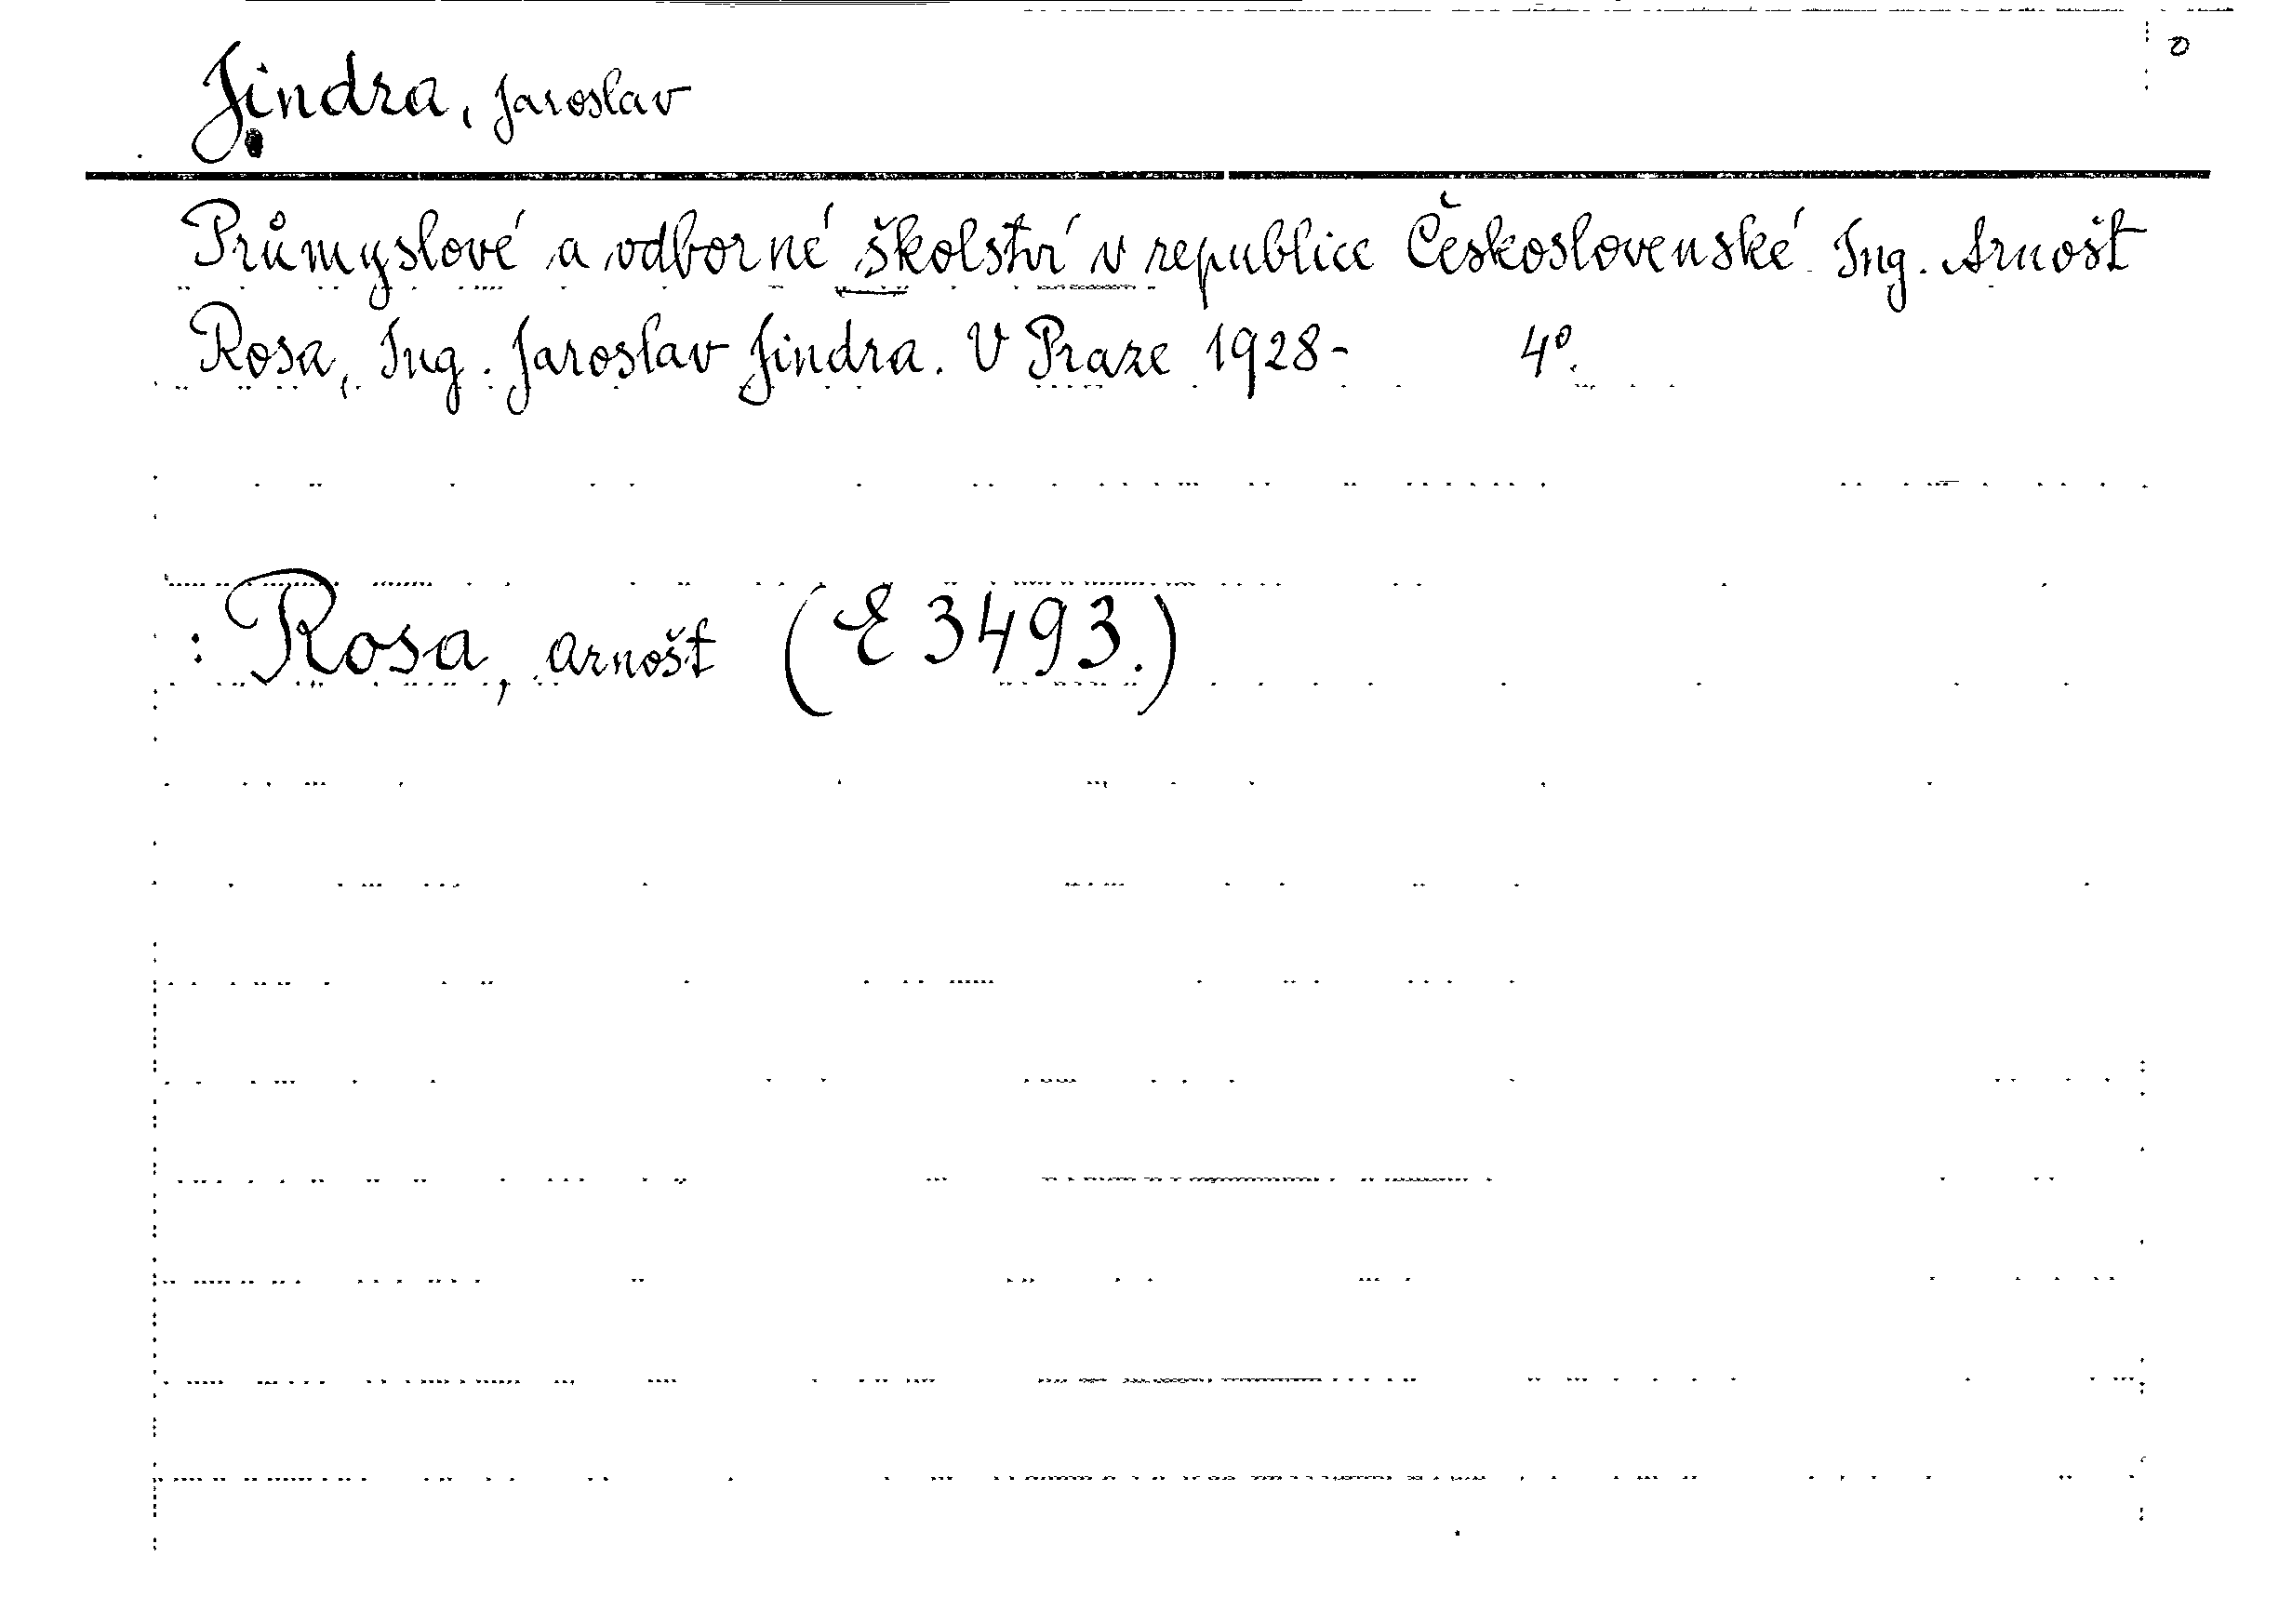 Jindra, Jaroslav
Průmyslové a odborné školství v republice Československé. Ing. Arnošt
Rosa, Ing. Jaroslav Jindra. V Praze 1928- 4°.
: Rosa, Arnošt (E 3493.)